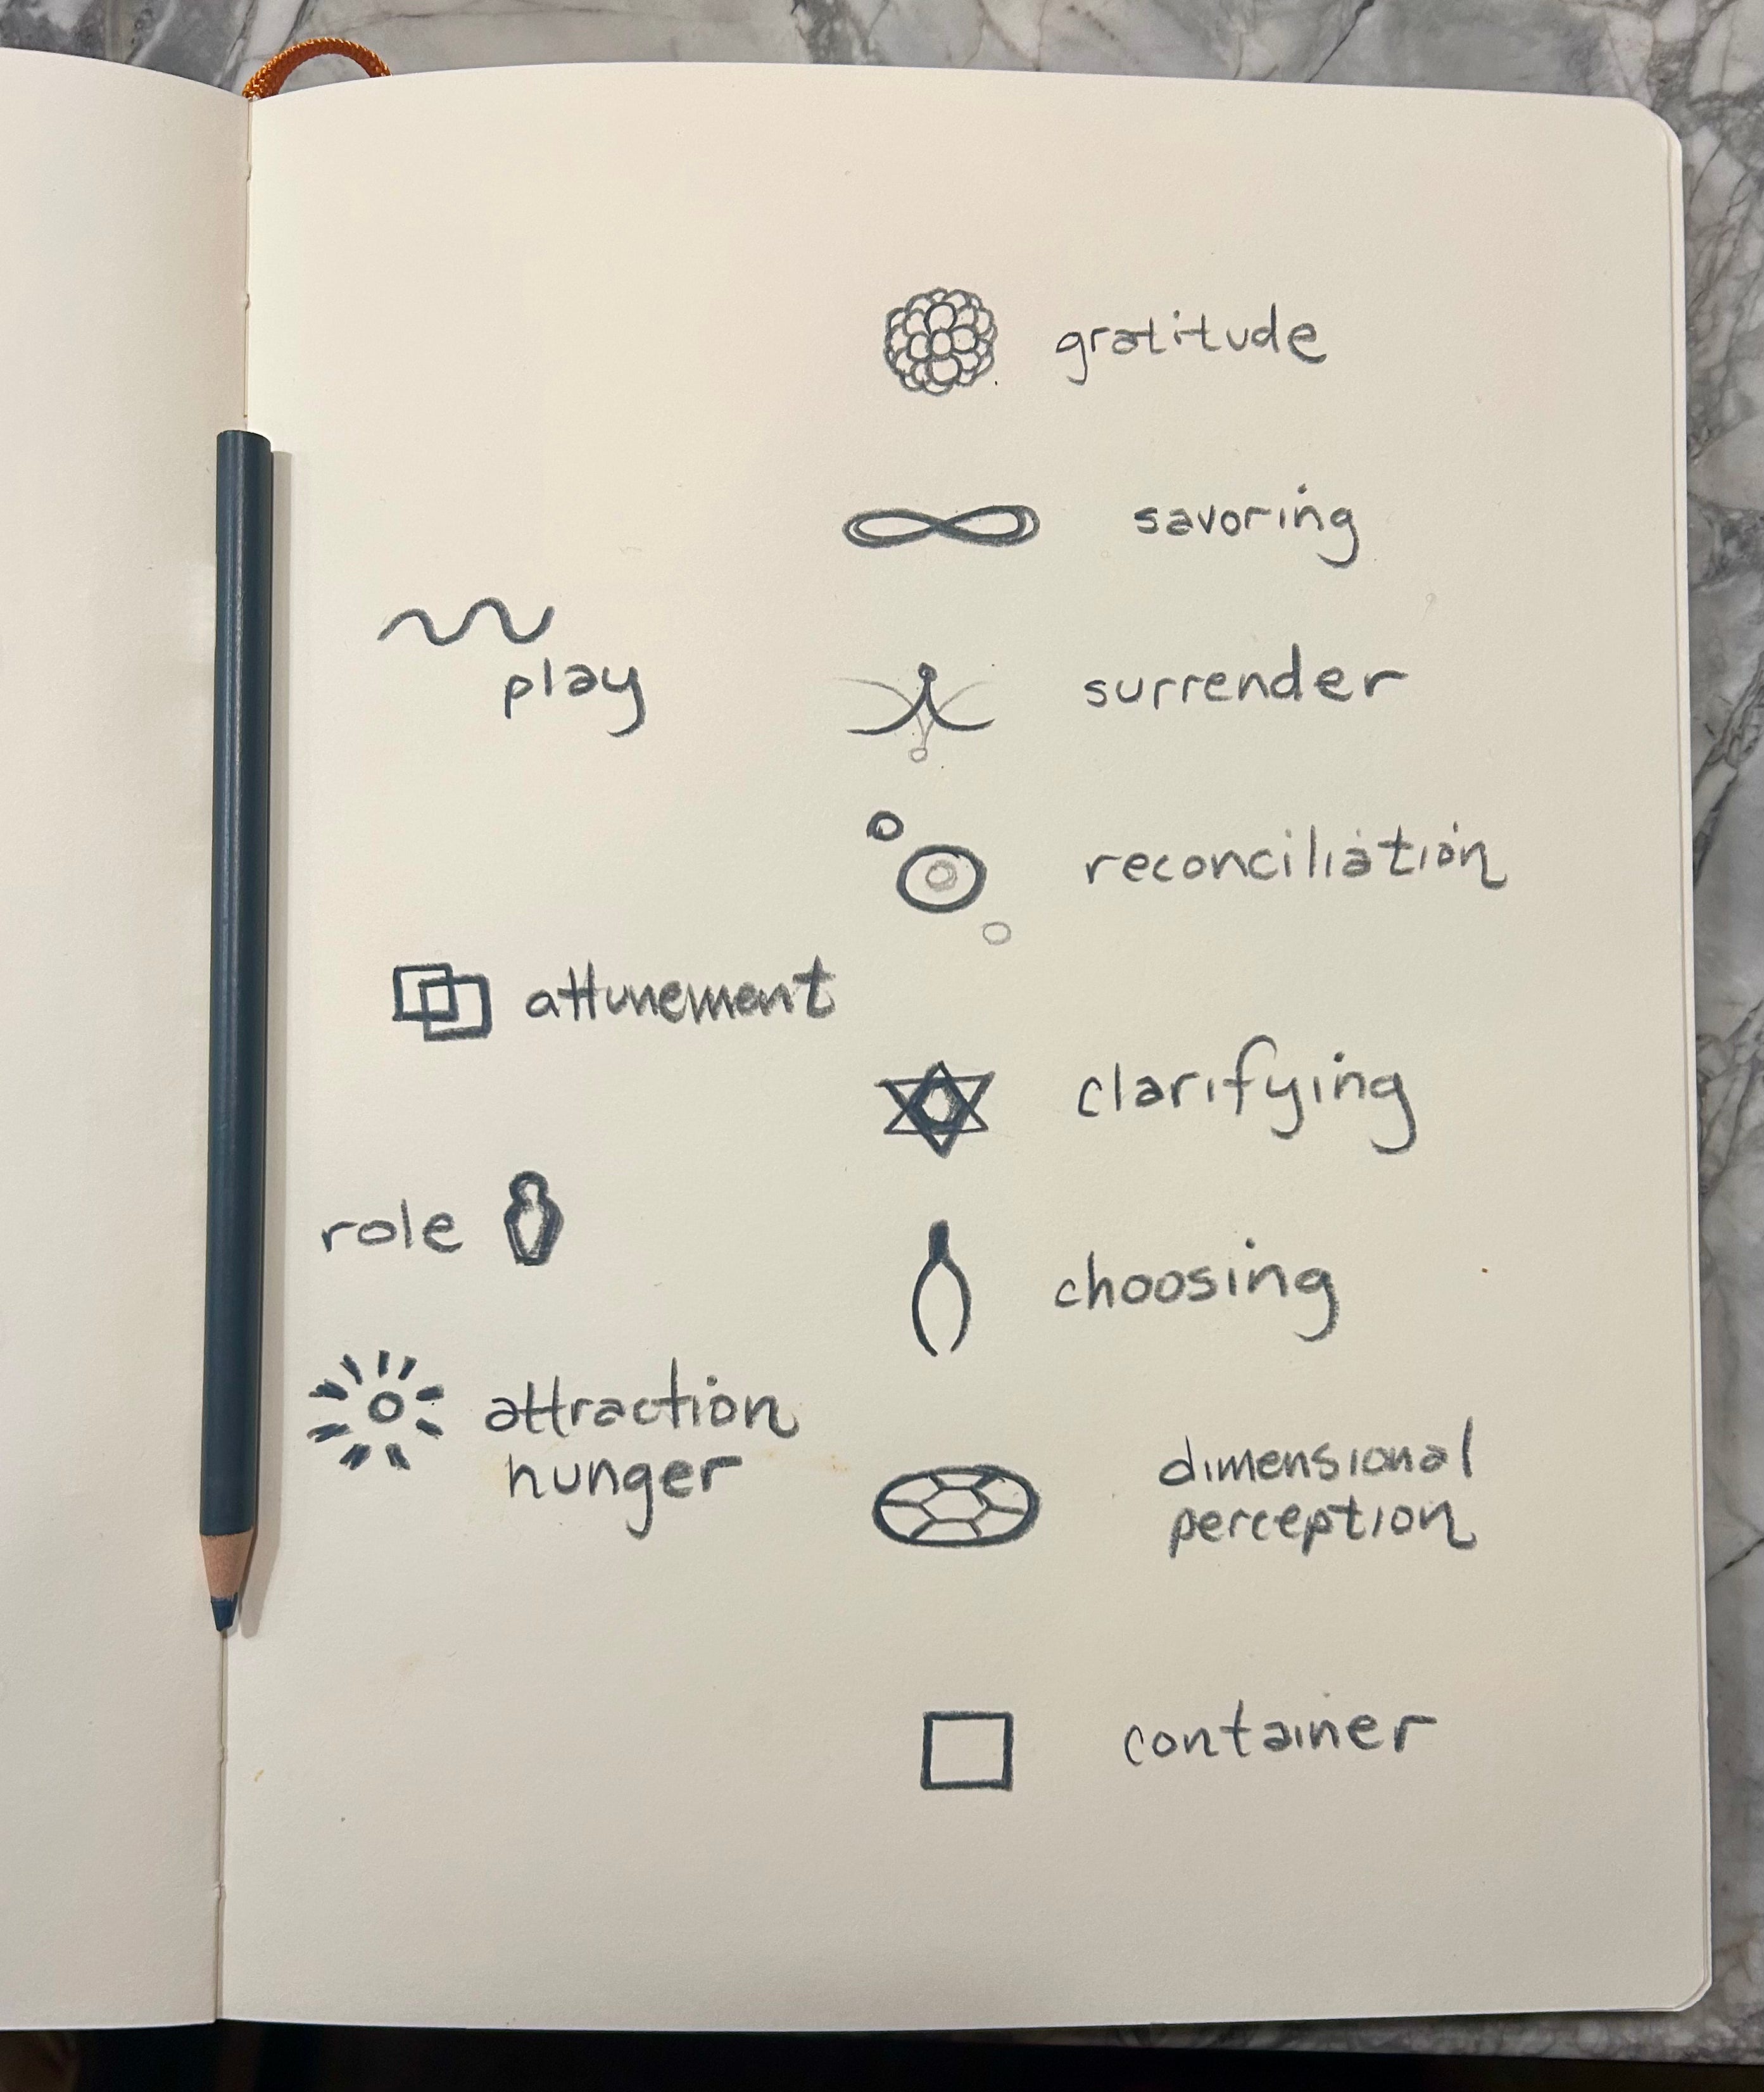 gratitude
savoring
play
surrender
reconciliation
attunement
clarifying
role
choosing
attraction
hunger
dimensional
perception
container